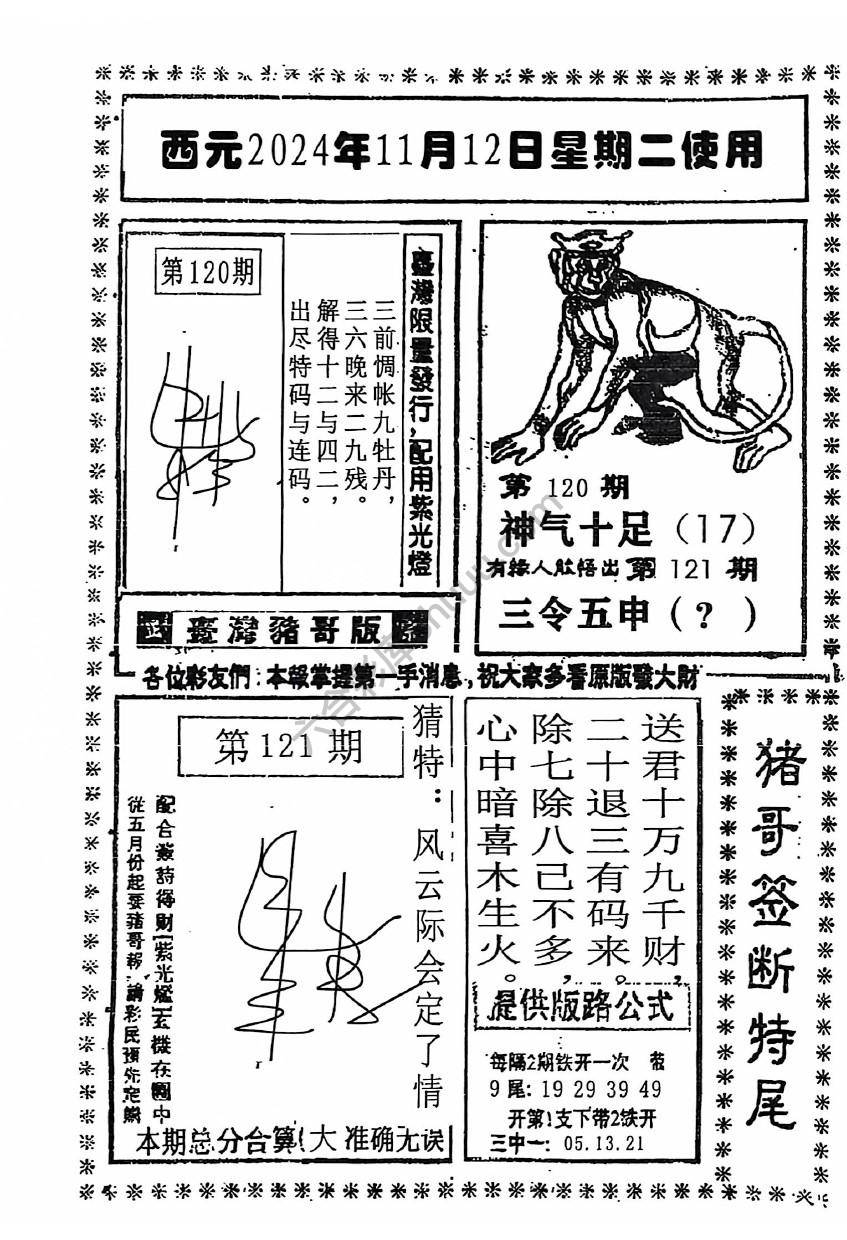 西元2024年11月12日星期二使用
第120期
三前惆帐九牡丹，
三六晚来二九残。
解得十二与四二，
出尽特码与连码。
臺灣限量發行，配用紫光燈
第 120 期
神气十足（17）
有緣人能悟出 第 121 期
三令五申（？）
臺灣豬哥版
各位彩友們：本報掌握第一手消息，祝大家多看原版發大財
第 121 期
猜特：风云际会定了情
從五月份起要豬哥報 請彩民預先定購
本期总分合算(大 准确无误
送君十万九千财，
二十退三有码来。
除七除八已不多，
心中暗喜木生火。
提供版路公式
每隔2期铁开一次 带
9尾：19 29 39 49
开第1支下带2铁开
三中一：05.13.21
猪哥签断特尾